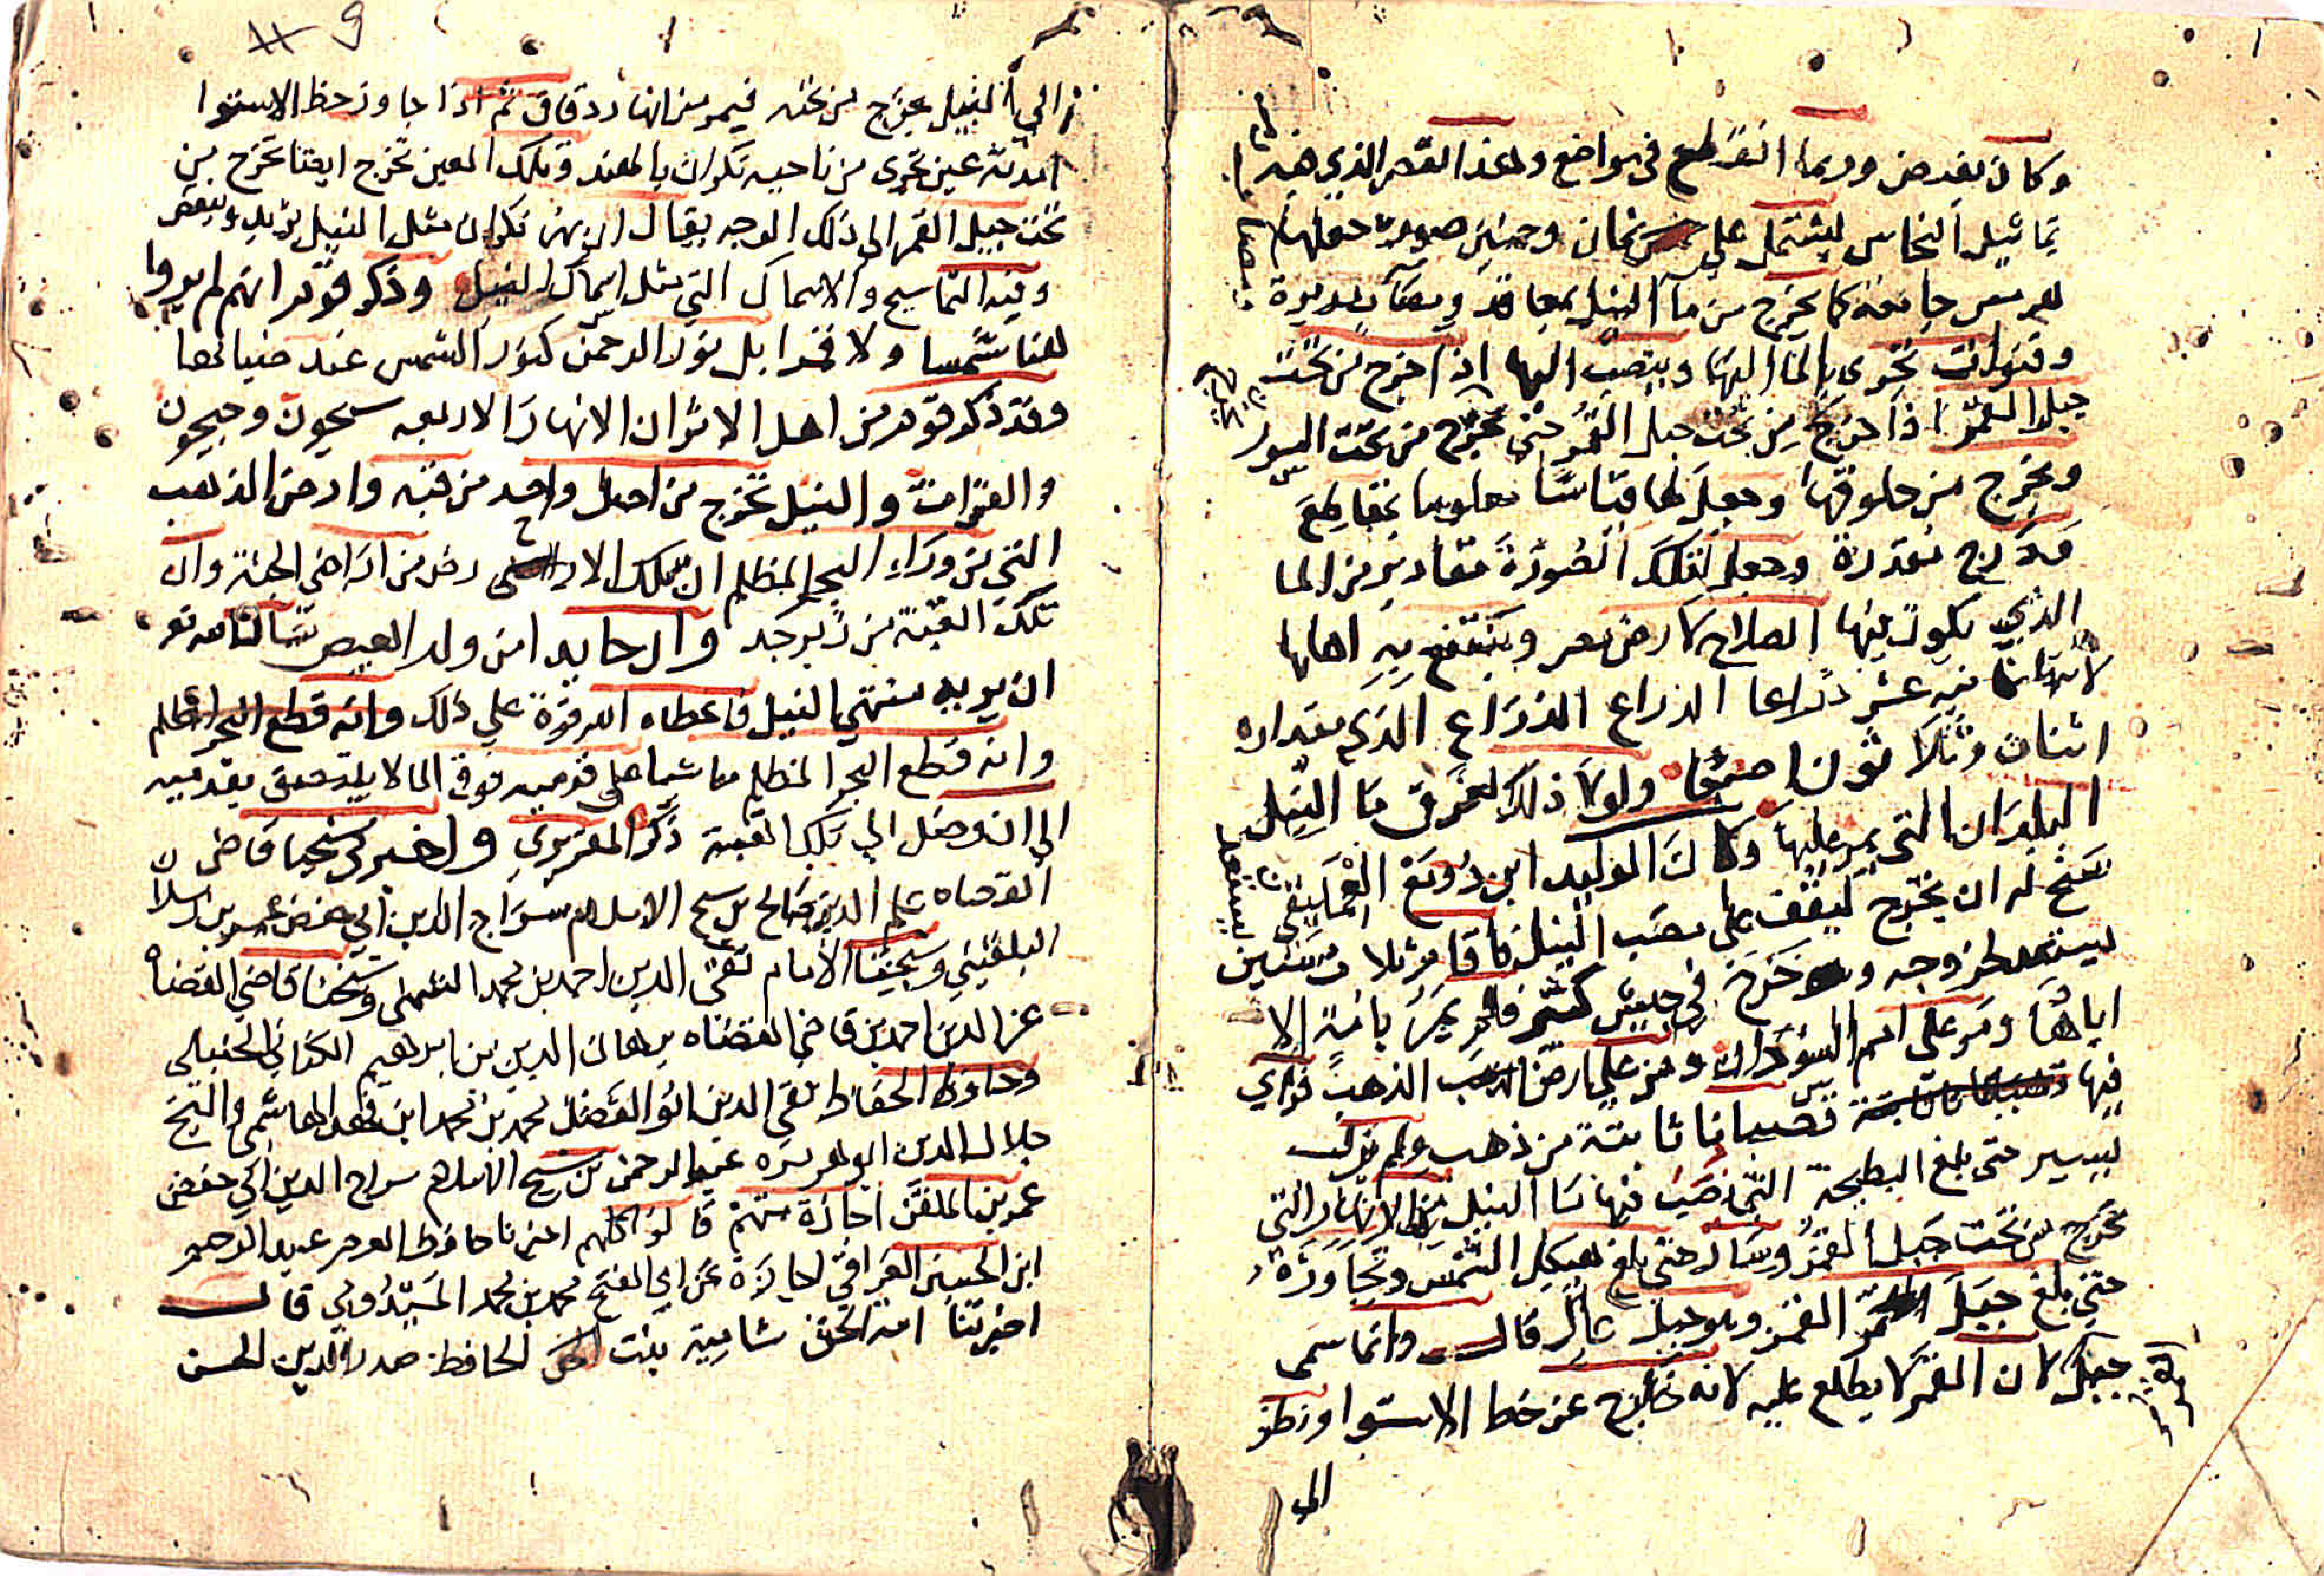 وكان يفيض وربما انقطع في مواضع وهذا القصر الذي فيه
تماثيل النحاس يشتمل على خمس وثمانين صورة جعلها
هرمس جامعة لما يخرج من ماء النيل بمعاقد ومصاب مدورة
وقنوات تجرى بالماء اليها وينصب اليها اذا خرج من تحت
جبل القمر اذا خرج من تحت جبل القمر حتى تخرج من تحت الصور
ويخرج من حلوقها وجعل لها قياسا معلوما بمقاطع
واذرع مقدرة وجعل لتلك الصورة مقادير من الماء
الذي يكون فيها الصلاح لارض مصر وينتفع به اهلها
ثمانية عشر ذراعا الذراع الذراع الذي مقداره
اثنان وثلاثون اصبعا ولولا ذلك لغرق ماء النيل
البلدان التي يمر عليها وكان الوليد ابن دومغ العمليقي
سنح له ان يخرج ليقف على مصب النيل فاقام ثلاث سنين
يستعد لخروجه وخرج في جيش كثير فلم يمر بامة الا
اباها ومر على امم السودان ومر على ارض الذهب فراي
فيها قضبانا نابتة من ذهب ولم يزل
يسير حتى بلغ البطيحة التي ينصب فيها ماء النيل من الانهار التي
تخرج من تحت جبل القمر وسار حتى بلغ هيكل الشمس وتجاوزه
حتى بلغ جبل القمر وهو جبل عال قال وانما سمى
جبل القمر لان القمر لا يطلع عليه لانه خارج عن خط الاستوا ونظر
الى
الى النيل يخرج من تحته فيمر من انهار دقاق ثم اذا جاوز خط الاستوا
امدته عين تجرى من ناحيه نكران بالهند وتلك العين تخرج ايضا تخرج من
تحت جبل القمر الى ذلك الوجه يقال ان نهر نكران مثل النيل يزيد وينقص
وفيه التماسيح والاسماك التي مثل اسماك النيل وذكر قوم انهم لم يروا
هنا شمسا ولا قمرا بل نور الرحمن كنور الشمس عند ضيائها
وقد ذكر قوم من اهل الاثر ان الانهار الاربعه سيحون وجيحون
والفرات والنيل تخرج من اصل واحد من قبه وارض الذهب
التي من وراء البحر المظلم ان تلك الارض من اراضي الجنة وان
تلك القبة من زبرجد وان حايد امن ولد العيص سال الله تع
ان يريه منتهي النيل فاعطاه الله قوة علي ذلك وانه قطع البحر المظلم
وانه قطع البحر المظلم ماشيا على قدميه فوق الماء لا يلتصق بقدميه
الى ان وصل الي تلك القبة ذكره المقريزي واخبرني شيخنا قاضي
القضاه علم الدين صالح بن شيخ الاسلام سراج الدين ابي حفص عمر بن رسلان
البلقيني وشيخنا الامام تقي الدين احمد بن محمد الشمني وشيخنا قاضي القضاه
عز الدين احمد بن قاضي القضاه برهان الدين بن ابراهيم الكناني الحنبلي
وحافظ الحفاظ تقي الدين ابو الفضل محمد بن محمد ابن فهد الهاشمي والشيخ
جلال الدين ابو هريره عبد الرحمن بن شيخ الاسلام سراج الدين ابي حفص
عمر بن الملقن اجازة منهم قالوا كلهم اخبرنا حافظ العصر عبد الرحيم
ابن الحسين العراقي اجازة عن ابي الفتح محمد بن محمد الميدومي قال
اخبرتنا امة الحق شامية بنت الحافظ صدر الدين الحسن